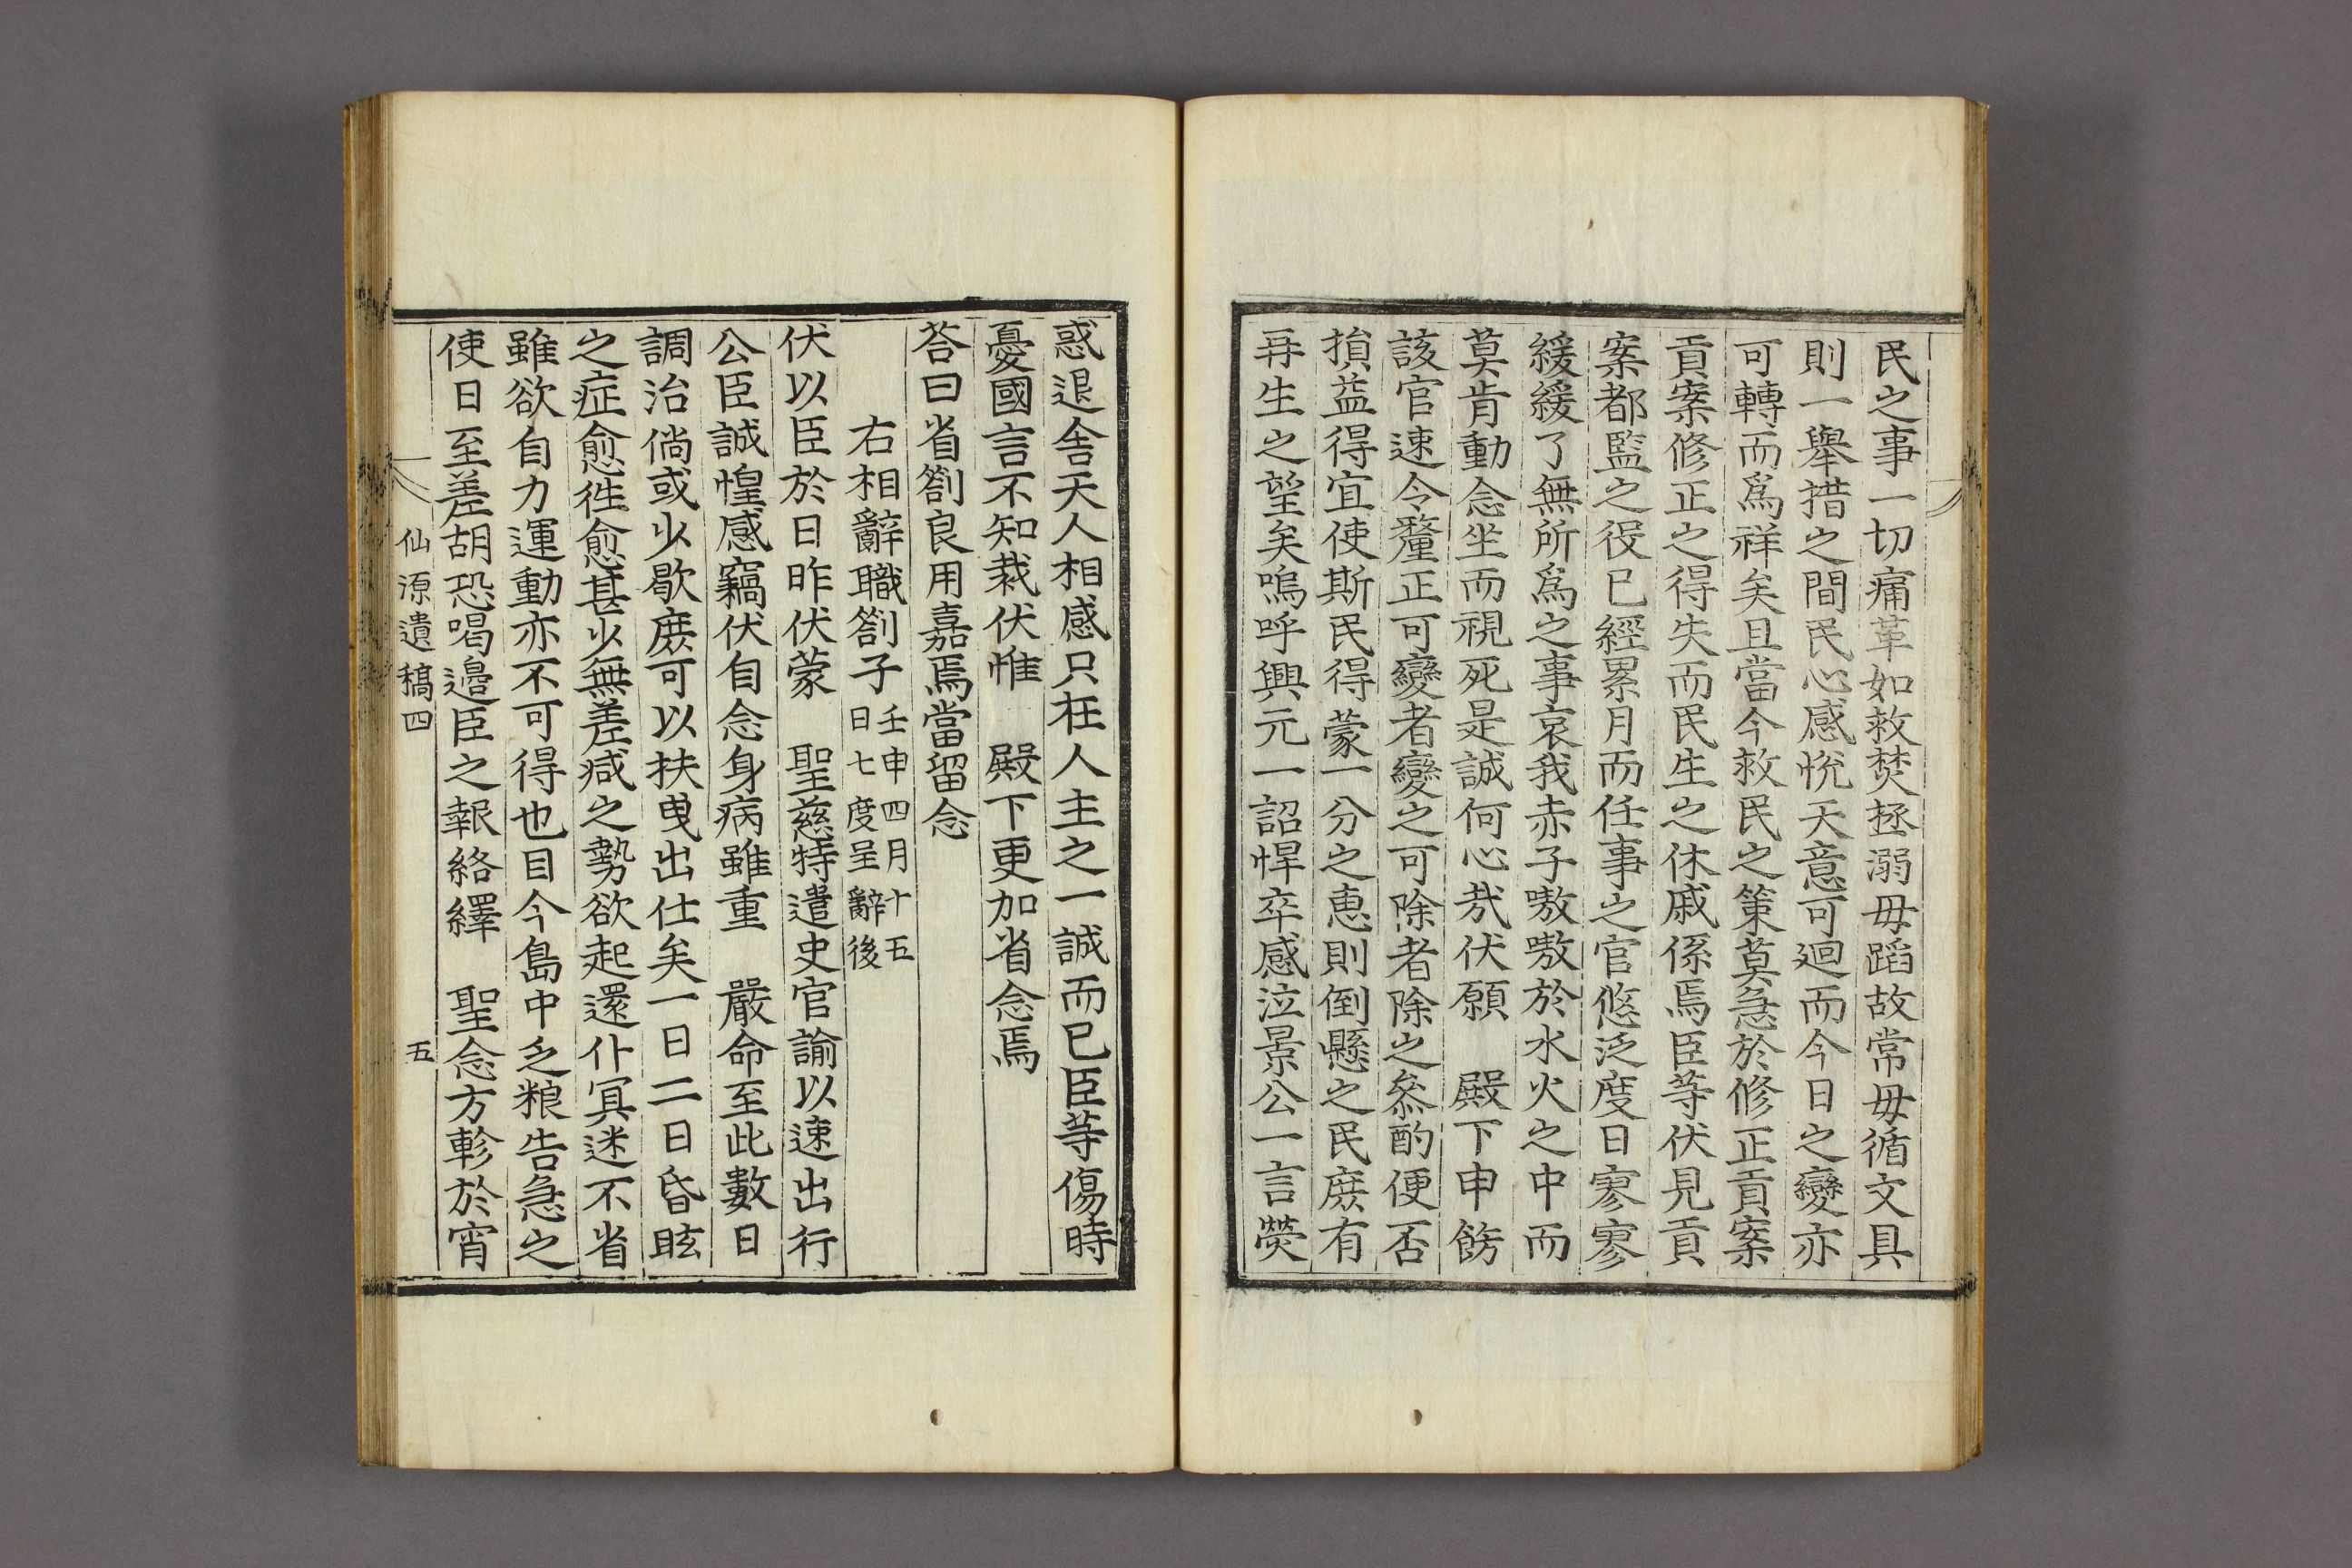 民之事一切痛革如救焚拯溺毋蹈故常毋循文具
則一擧措之間民心感悅天意可迴而今日之變亦
可轉而爲祥矣且當今救民之策莫急於修正貢案
貢案修正之得失而民生之休戚係焉臣等伏見貢
案都監之役已經累月而任事之官悠泛度日寥寥
緩緩了無所爲之事哀我赤子嗷嗷於水火之中而
莫肯動念坐而視死是誠何心㢤伏願　殿下申飭
該官速令釐正可變者變之可除者除之叅酌便否
損益得宜使斯民得蒙一分之惠則倒懸之民庶有
再生之望矣嗚呼興元一詔悍卒感泣景公一言熒
惑退舍天人相感只在人主之一誠而已臣等傷時
憂國言不知裁伏惟　殿下更加省念焉
荅曰省劄良用嘉焉當留念
右相辭職劄子壬申四月十五日七度呈辭後
伏以臣於日昨伏蒙　聖慈特遣史官諭以速出行
公臣誠惶感竊伏自念身病雖重　嚴命至此數日
調治倘或少歇庶可以扶曳出仕矣一日二日昏眩
之症愈徃愈甚少無差减之勢欲起還仆冥迷不省
雖欲自力運動亦不可得也目今島中乏粮告急之
使日至差胡恐喝邊臣之報絡繹　聖念方軫於宵
仙源遺稿四　五